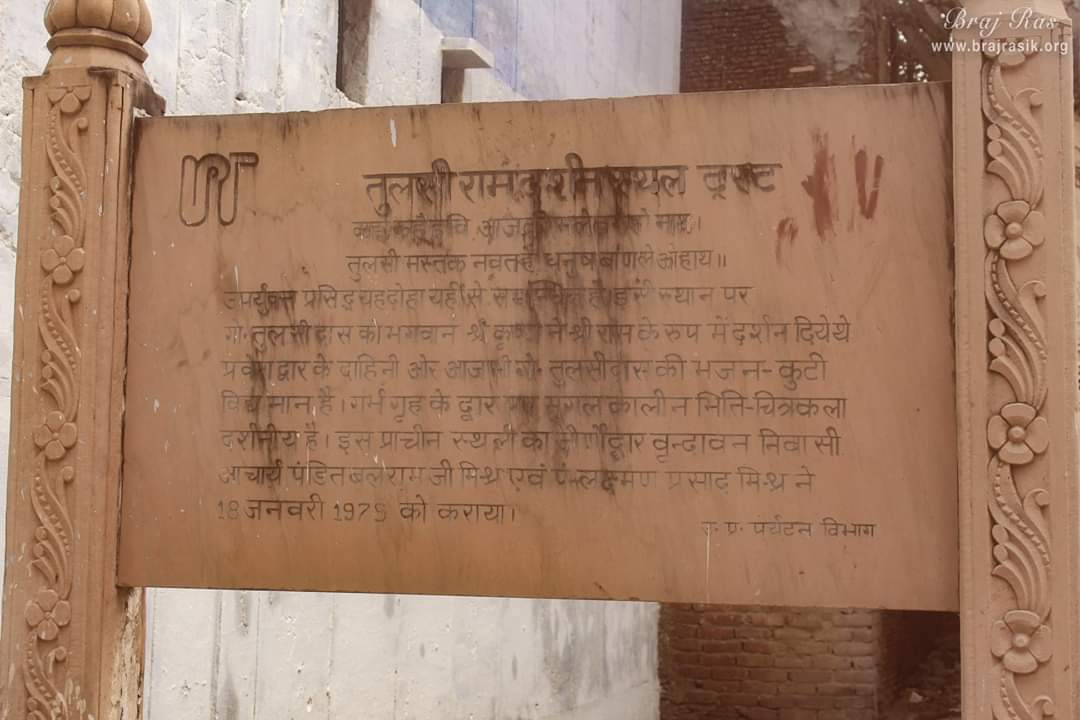 Braj Ras
www.brajrasik.org
तुलसी रामदर्शन स्थल ट्रस्ट
तुलसी मस्तक नवत है धनुष बाण लेओ हाथ॥
उपर्युक्त प्रसिद्ध यह दोहा यहीं से सम्बन्धित है। इसी स्थान पर
गो॰ तुलसीदास को भगवान श्री कृष्ण ने श्री राम के रुप में दर्शन दिये थे
प्रवेश द्वार के दाहिनी ओर आज भी गो॰ तुलसीदास की भजन-कुटी
विद्यमान है। गर्भ गृह के द्वार पर मुगल कालीन भिति-चित्रकला
दर्शनीय है। इस प्राचीन स्थली का जीर्णोद्वार वृन्दावन निवासी
आचार्य पंडित बलराम जी मिश्र एवं पं॰ लक्ष्मण प्रसाद मिश्र ने
18 जनवरी 1979 को कराया।
उ॰ प्र॰ पर्यटन विभाग